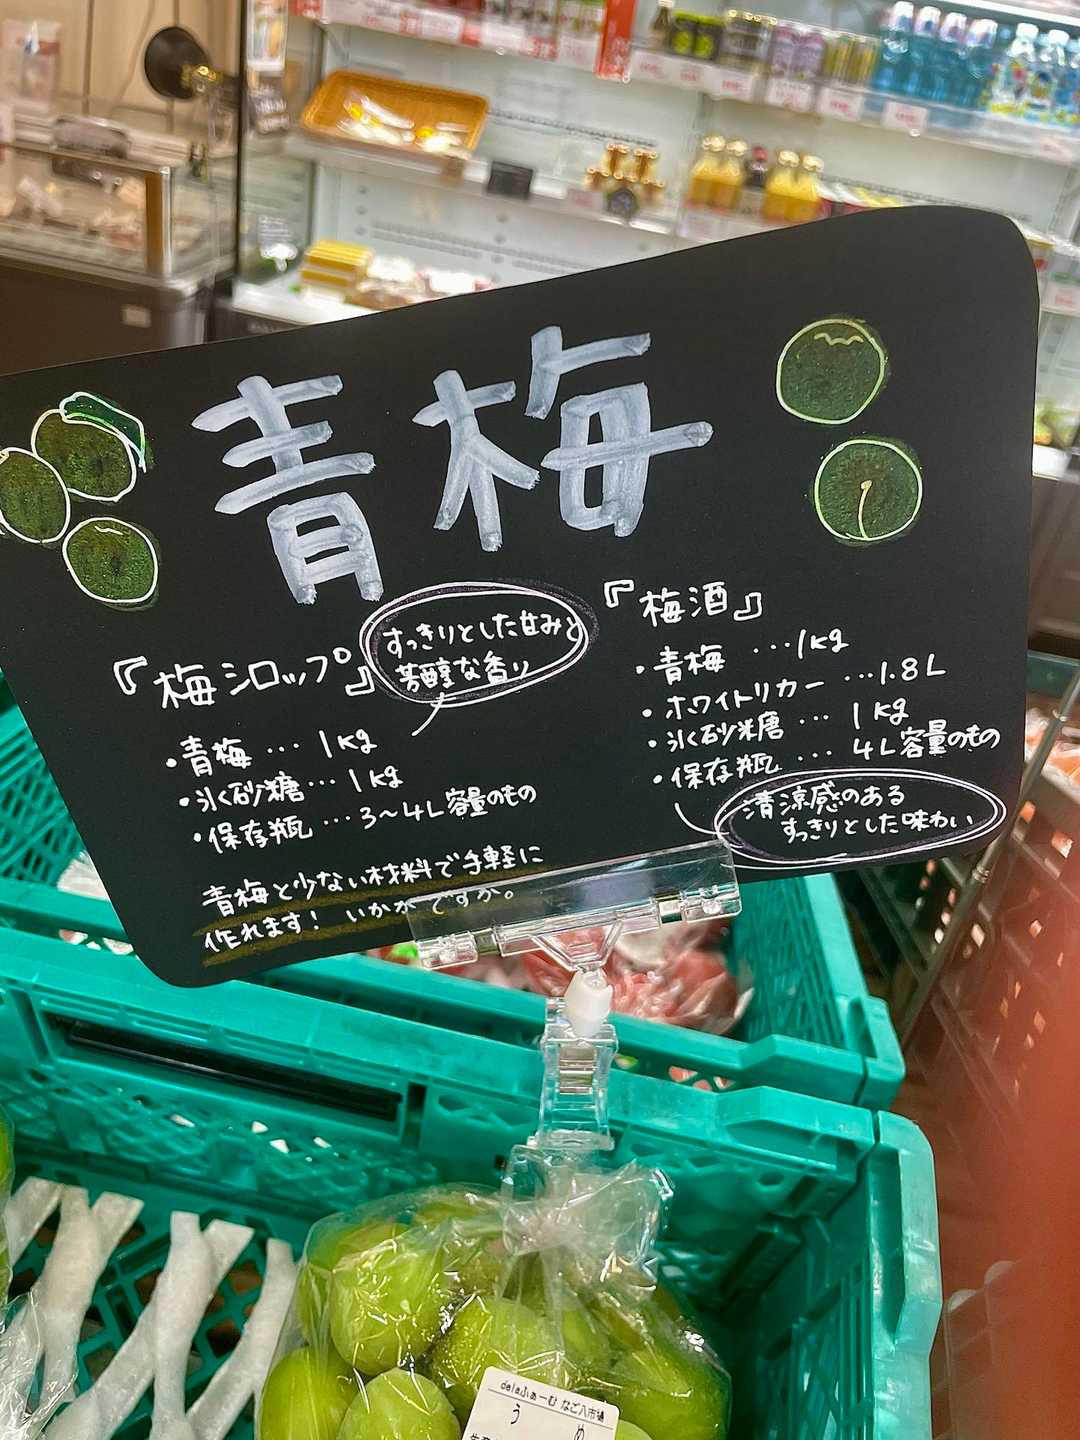 青梅
『梅シロップ』
すっきりとした甘みと
芳醇な香り
・青梅 … 1kg
・氷砂糖 … 1kg
・保存瓶 … 3〜4L容量のもの
青梅と少ない材料で手軽に
作れます! いかがですか。
『梅酒』
・青梅 … 1kg
・ホワイトリカー … 1.8L
・氷砂糖 … 1kg
・保存瓶 … 4L容量のもの
清涼感のある
すっきりとした味わい
delaふぁーむ なご八市場
うめ